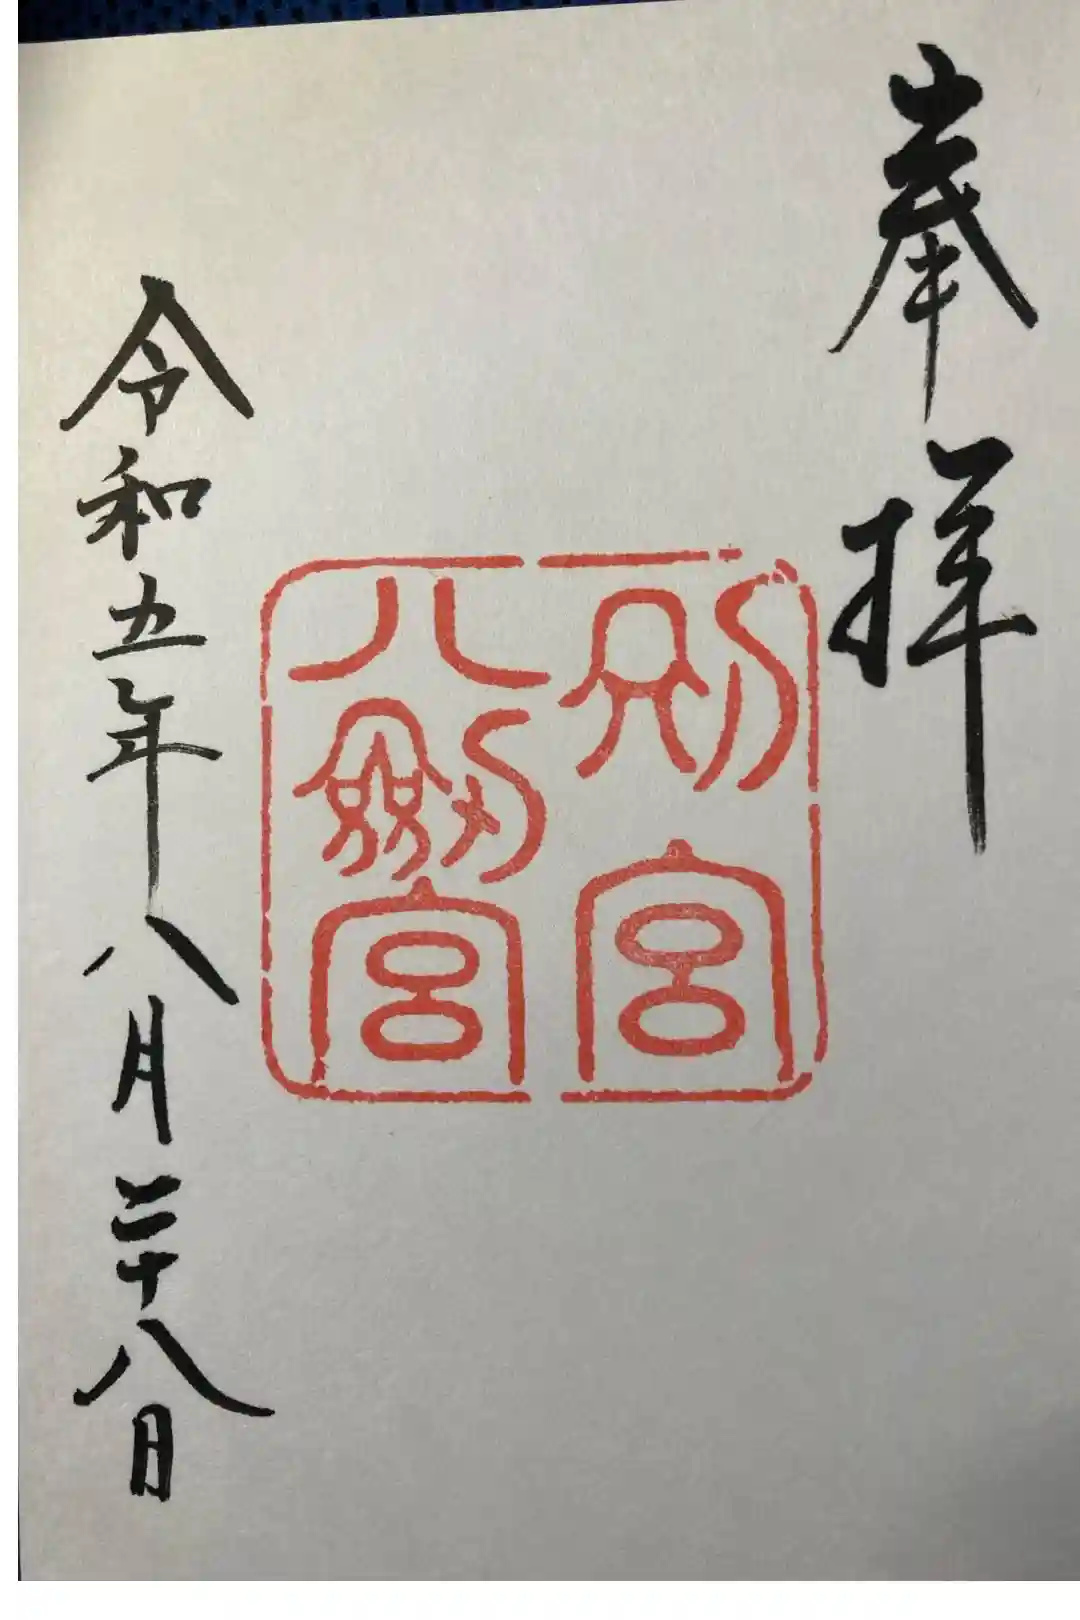 奉拝
別宮
八劔宮
令和五年八月二十八日